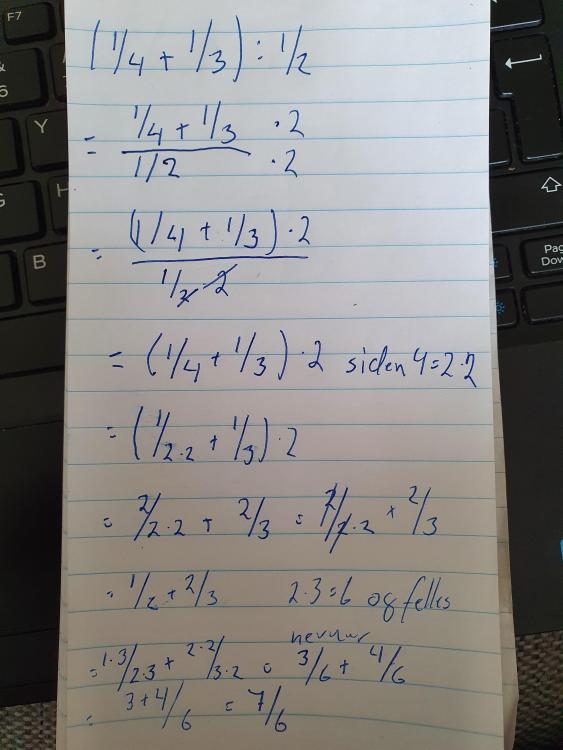 F7
&
6
Y
G
H
B
Pag
Dow
(1/4 + 1/3) : 1/2
= 1/4 + 1/3 · 2
1/2 · 2
= (1/4 + 1/3) · 2
1/2 · 2
= (1/4 + 1/3) · 2 siden 4=2·2
= (1/2·2 + 1/3) · 2
= 2/2·2 + 2/3 = 2/2·2 + 2/3
= 1/2 + 2/3 2·3=6 og felles
nevner
= 1·3/2·3 + 2·2/3·2 = 3/6 + 4/6
= 3+4/6 = 7/6